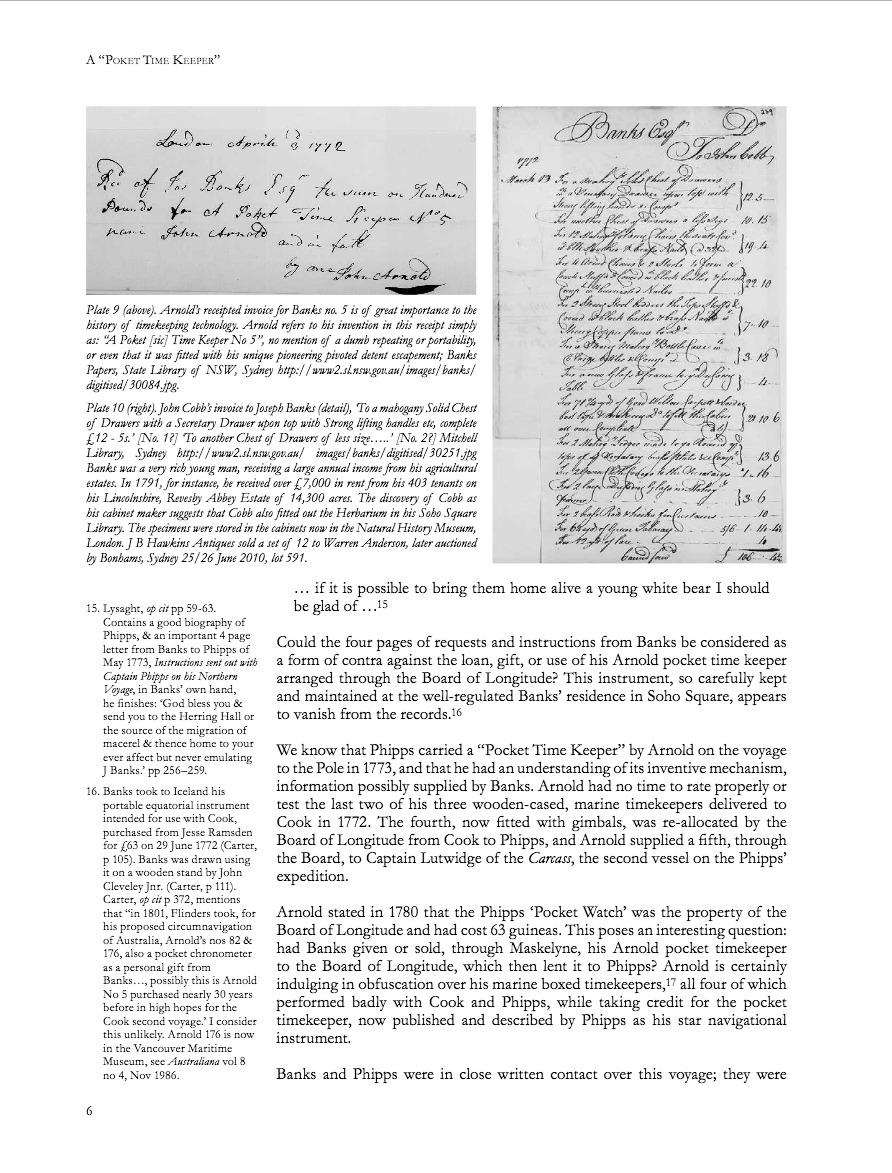 A “POKET TIME KEEPER”
London April 3 1772
Rcd of Jos Banks Esqr the sum on Hundred
Pounds for A Poket Time Keeper No 5
John Arnold and in full
by me John Arnold
Plate 9 (above). Arnold’s receipted invoice for Banks no. 5 is of great importance to the
history of timekeeping technology. Arnold refers to his invention in this receipt simply
as: “A Poket [sic] Time Keeper No 5”, no mention of a dumb repeating or portability,
or even that it was fitted with his unique pioneering pivoted detent escapement; Banks
Papers, State Library of NSW, Sydney http://www2.sl.nsw.gov.au/images/banks/
digitised/30084.jpg.
Plate 10 (right). John Cobb’s invoice to Joseph Banks (detail), ‘To a mahogany Solid Chest
of Drawers with a Secretary Drawer upon top with Strong lifting handles etc, complete
£12 - 5s.’ [No. 1?] ‘To another Chest of Drawers of less size…..’ [No. 2?] Mitchell
Library, Sydney http://www2.sl.nsw.gov.au/ images/banks/digitised/30251.jpg
Banks was a very rich young man, receiving a large annual income from his agricultural
estates. In 1791, for instance, he received over £7,000 in rent from his 403 tenants on
his Lincolnshire, Revesby Abbey Estate of 14,300 acres. The discovery of Cobb as
his cabinet maker suggests that Cobb also fitted out the Herbarium in his Soho Square
Library. The specimens were stored in the cabinets now in the Natural History Museum,
London. J B Hawkins Antiques sold a set of 12 to Warren Anderson, later auctioned
by Bonhams, Sydney 25/26 June 2010, lot 591.
Banks Esqr Dr
To John Cobb
1772
March 13
12.5
10.15
19.4
22.10
7.10
3.18
4
21 10 6
13 6
1.16
3.6
10
5/6 1.14
… if it is possible to bring them home alive a young white bear I should
be glad of …15
Could the four pages of requests and instructions from Banks be considered as
a form of contra against the loan, gift, or use of his Arnold pocket time keeper
arranged through the Board of Longitude? This instrument, so carefully kept
and maintained at the well-regulated Banks’ residence in Soho Square, appears
to vanish from the records.16
We know that Phipps carried a “Pocket Time Keeper” by Arnold on the voyage
to the Pole in 1773, and that he had an understanding of its inventive mechanism,
information possibly supplied by Banks. Arnold had no time to rate properly or
test the last two of his three wooden-cased, marine timekeepers delivered to
Cook in 1772. The fourth, now fitted with gimbals, was re-allocated by the
Board of Longitude from Cook to Phipps, and Arnold supplied a fifth, through
the Board, to Captain Lutwidge of the Carcass, the second vessel on the Phipps’
expedition.
Arnold stated in 1780 that the Phipps ‘Pocket Watch’ was the property of the
Board of Longitude and had cost 63 guineas. This poses an interesting question:
had Banks given or sold, through Maskelyne, his Arnold pocket timekeeper
to the Board of Longitude, which then lent it to Phipps? Arnold is certainly
indulging in obfuscation over his marine boxed timekeepers,17 all four of which
performed badly with Cook and Phipps, while taking credit for the pocket
timekeeper, now published and described by Phipps as his star navigational
instrument.
Banks and Phipps were in close written contact over this voyage; they were
15. Lysaght, op cit pp 59-63.
Contains a good biography of
Phipps, & an important 4 page
letter from Banks to Phipps of
May 1773, Instructions sent out with
Captain Phipps on his Northern
Voyage, in Banks’ own hand,
he finishes: ‘God bless you &
send you to the Herring Hall or
the source of the migration of
macerel & thence home to your
ever affect but never emulating
J Banks.’ pp 256–259.
16. Banks took to Iceland his
portable equatorial instrument
intended for use with Cook,
purchased from Jesse Ramsden
for £63 on 29 June 1772 (Carter,
p 105). Banks was drawn using
it on a wooden stand by John
Cleveley Jnr. (Carter, p 111).
Carter, op cit p 372, mentions
that “in 1801, Flinders took, for
his proposed circumnavigation
of Australia, Arnold’s nos 82 &
176, also a pocket chronometer
as a personal gift from
Banks…, possibly this is Arnold
No 5 purchased nearly 30 years
before in high hopes for the
Cook second voyage.’ I consider
this unlikely. Arnold 176 is now
in the Vancouver Maritime
Museum, see Australiana vol 8
no 4, Nov 1986.
6